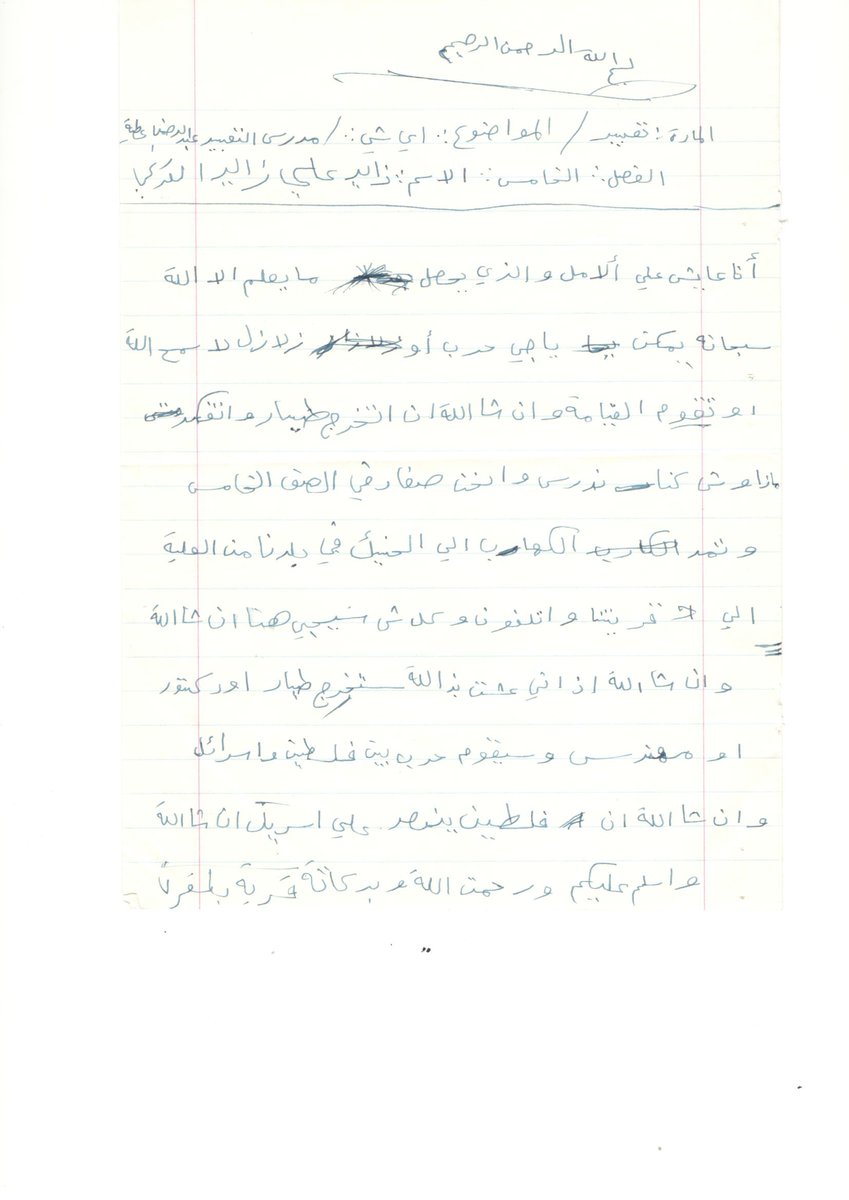 بسم الله الرحمن الرحيم
المادة: تعبير / المواضوع: اي شي: / مدرس التعبير عبد الرضا عطية
الفصل: الخامس: الاسم: زايد علي زايد العركي
أنا عايش علي ألامل والذي يحصل ما يعلم الا الله
سبحانه يمكن ياجي حرب أو زلازل لا سمح الله
او تقوم القيامة وان شا الله ان اتخرج طيار و اتفكر
ماذا وش كنا ندرس و انحن صغار في الصف الخامس
وتمد الكهارب الي الحنيك في بلدنا من العلية
الي قريتنا و اتلفون و كل ش سيجي هنا ان شا الله
وان شا الله اذاني عشت بذا الله ستخرج طيار اودكتور
او مهندس وسيقوم حرب بين فلطين واسرائل
وان شا الله ان فلطين ينصر علي اسريك ان شا الله
واسلم عليكم ورحمت الله وبركاتة قرية